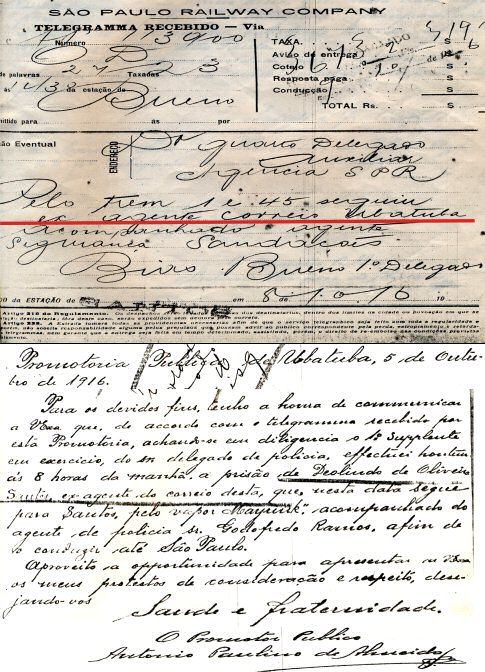 SÃO PAULO RAILWAY COMPANY
TELEGRAMMA RECEBIDO — Via
Numero 3900
TAXA. $
Aviso de entrega $
de palavras 27 Taxadas 23
Cotejo $
Resposta paga $
ás 1438 da estação de Bueno
Conducção $
TOTAL Rs. $
mittido para ás por
ção Eventual
ENDEREÇO
Dr Quarto Delegado
Auxiliar
Agencia SPR
Pelo trem 1 e 45 seguiu
ex agente correio Ubatuba
acompanhado agente
Segurança Saudações
Bias Bueno 1º Delegado
DA ESTAÇÃO DE em 8 de 10 16 19
Promotoria Publica de Ubatuba, 5 de Outu-
bro de 1916.
Para os devidos fins, tenho a honra de communicar
a VExa que, de accordo com o telegramma recebido por
esta Promotoria, achando-se em diligencia o 1º Supplente
em exercicio, do sr. delegado de policia, effectuei hontem
ás 8 horas da manhã, a prisão de Deolindo de Oliveira
Santos, ex-agente do correio desta, que, nesta data segue
para Santos, pelo vapor "Mayrink", acompanhado do
agente de policia sr. Godofredo Ramos, afim de
o conduzir até São Paulo.
Aproveito a opportunidade para apresentar a VExa
os meus protestos de consideração e respeito, dese-
jando-vos
Saude e fraternidade.
O Promotor Publico
Antonio Paulino de Almeida